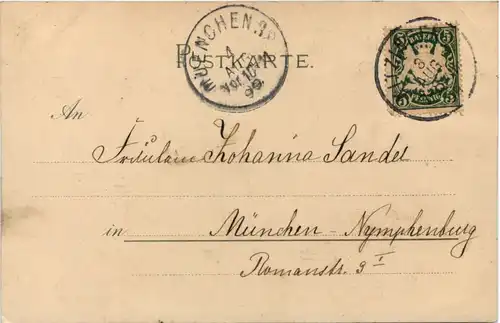 POSTKARTE.
MUENCHEN.
4
AUG
Vor. 10-11
98
BAYERN
5 5
PFENNIG
3
AUG
An
Fräulein Johanna Sandel
in München - Nymphenburg
Romanstr. 9 I